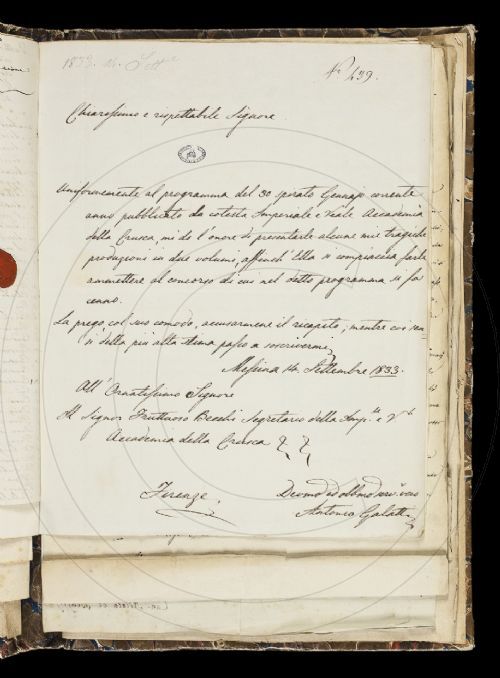 1833. 14. Sett.e
N.o 439.
Chiarissimo e rispettabile Signore
Uniformemente al programma del 30 spirato Gennajo corrente
anno pubblicato da cotesta Imperiale e Reale Accademia
della Crusca, mi do l'onore di presentarle alcune mie tragiche
produzioni in due volumi, affinch' Ella si compiaccia farle
ammettere al concorso di cui nel detto programma si fa
cenno.
La prego col suo comodo, accusarmene il ricapito; mentre coi sen-
si della più alta stima passo a soscrivermi
Messina 14 Settembre 1833.
All' Ornatissimo Signore
Il Signor Fruttuoso Becchi Segretario della Imp.le e R.le
Accademia della Crusca
Firenze
Devmo ed obbmo servo vero
Antonio Galatti